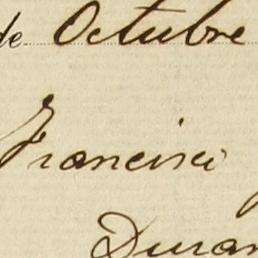 de Octubre
Francisci
Duran